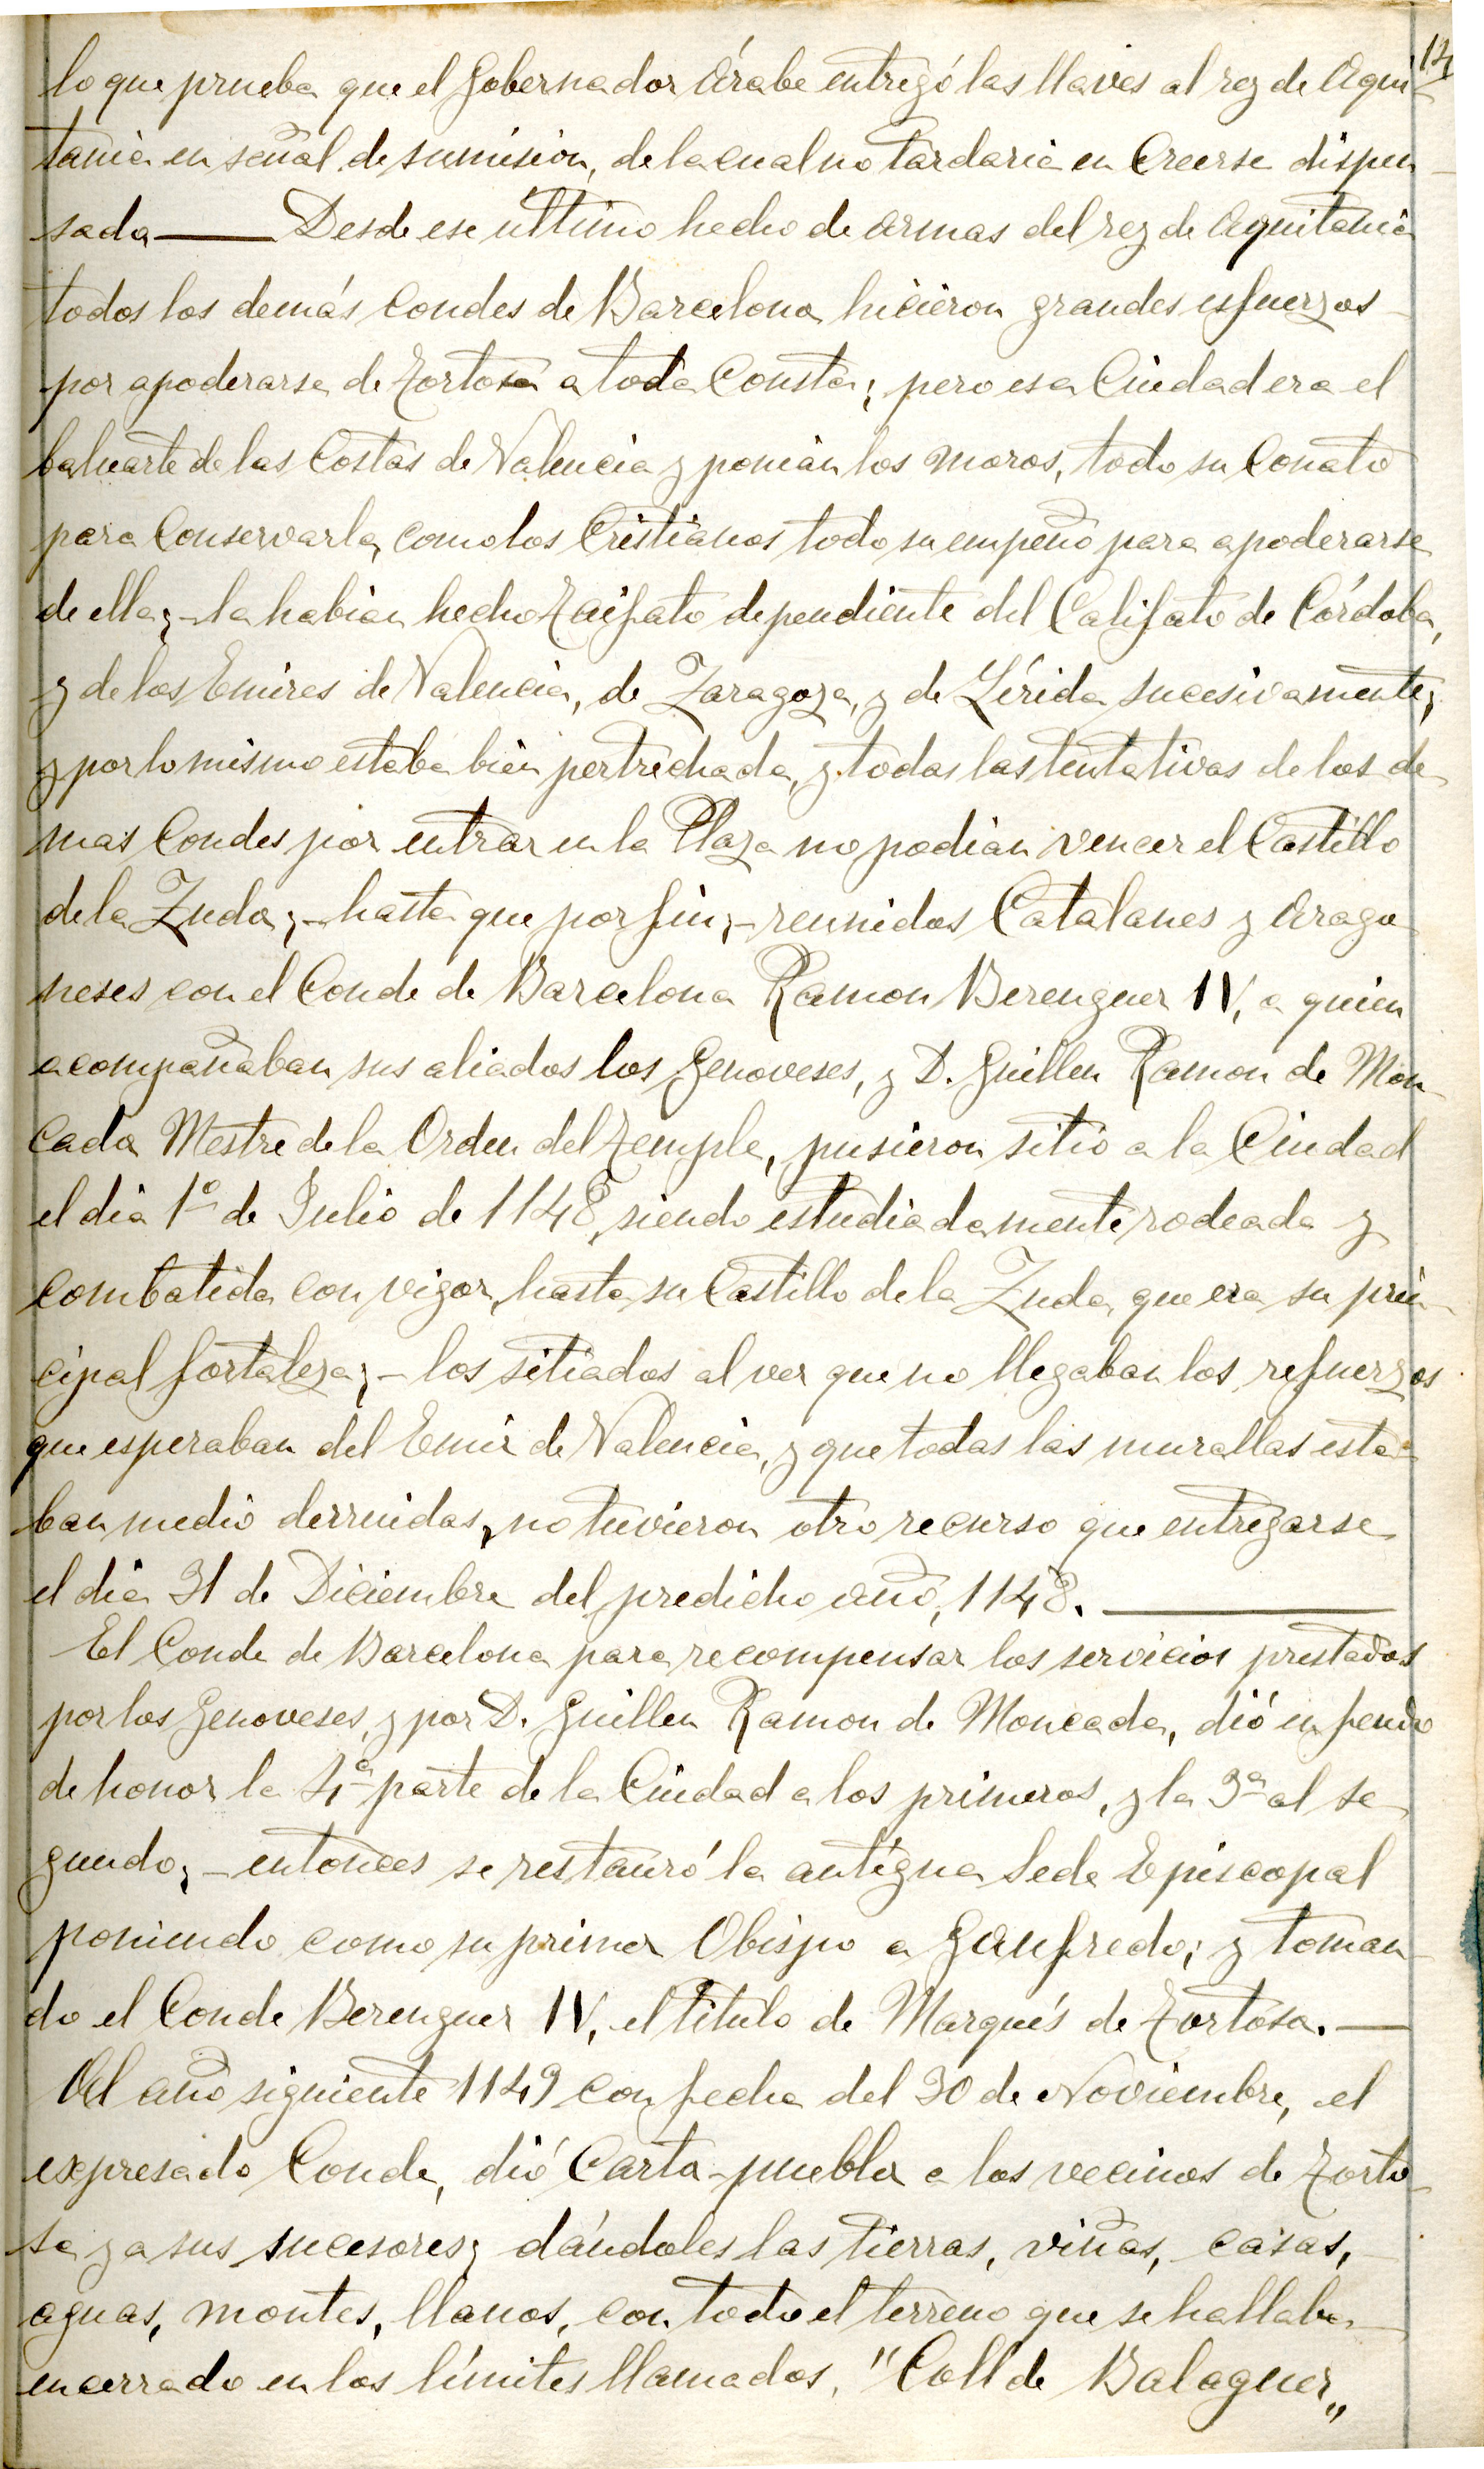 14
lo que prueba que el Gobernador Árabe entregó las llaves al rey de Aqui-
tania en señal de sumisión, de la cual no tardaria en Creerse dispen-
sada —— Desde ese último hecho de armas del rey de Aquitania
todos los demás Condes de Barcelona, hicieron grandes esfuerzos
por apoderarse de Tortosa a toda Consta; pero esa Ciudad era el
baluarte de las Costas de Valencia y ponian los moros, todo su Conato
para Conservarla, como los Cristianos todo su empeño para apoderarse
de ella; - la habian hecho Taifato dependiente del Califato de Córdoba,
y de los Emires de Valencia, de Zaragoza, y de Lérida sucesivamente;
y por lo mismo estaba bien pertrechada, y todas las tentativas de los de-
mas Condes por entrar en la Plaza no podian vencer el Castillo
de la Zuda; - hasta que por fin; - reunidos Catalanes y Arago-
neses con el Conde de Barcelona Ramon Berenguer IV, a quien
acompañaban sus aliados los Genoveses, y D. Guillen Ramon de Mon-
cada Mestre de la Orden del Temple, pusieron sitio a la Ciudad
el dia 1º de Julio de 1148, siendo estudiadamente rodeada y
combatida con vigor, hasta su Castillo de la Zuda, que era su prin-
cipal fortaleza; - los sitiados al ver que no llegaban los refuerzos
que esperaban del Emir de Valencia, y que todas las murallas esta-
ban medio derruidas, no tuvieron otro recurso que entregarse
el dia 31 de Diciembre del predicho año, 1148. ——
El Conde de Barcelona para recompensar los servicios prestados
por los Genoveses, y por D. Guillen Ramon de Moncada, dió en feudo
de honor la 4ª parte de la Ciudad a los primeros, y la 3ª al se-
gundo; - entonces se restauró la antígua Sede Episcopal
poniendo como su primer Obispo a Gaufredo; y toman-
do el Conde Berenguer IV, el Título de Marqués de Tortosa. —
Al año siguiente 1149 con fecha del 30 de Noviembre, el
expresado Conde, dió Carta-puebla a los vecinos de Torto-
sa y a sus sucesores; dándoles las tierras, viñas, casas,
aguas, montes, llanos, con todo el terreno que se hallaba
encerrado en los límites llamados, "Coll de Balaguer„